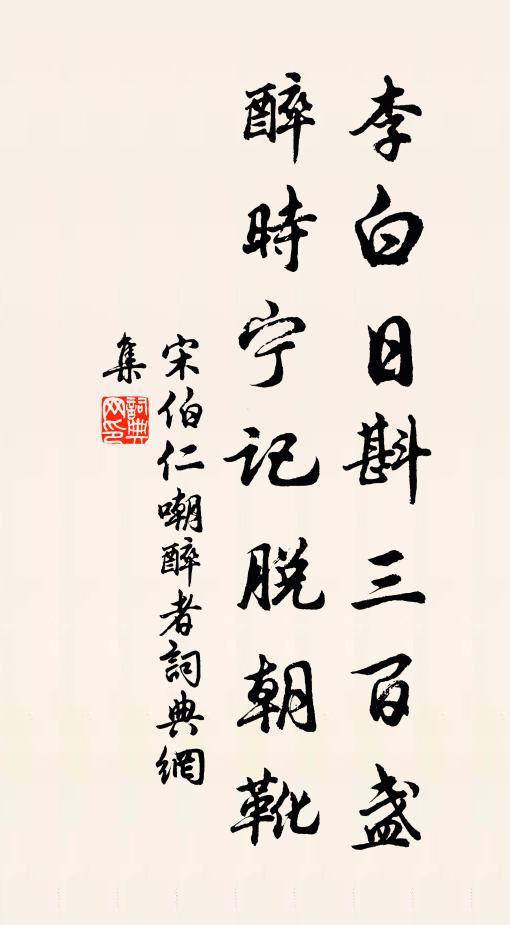 李白日斟三百盏
醉時宁记脱朝靴
宋伯仁嘲醉者詞典網
集
詞典网印